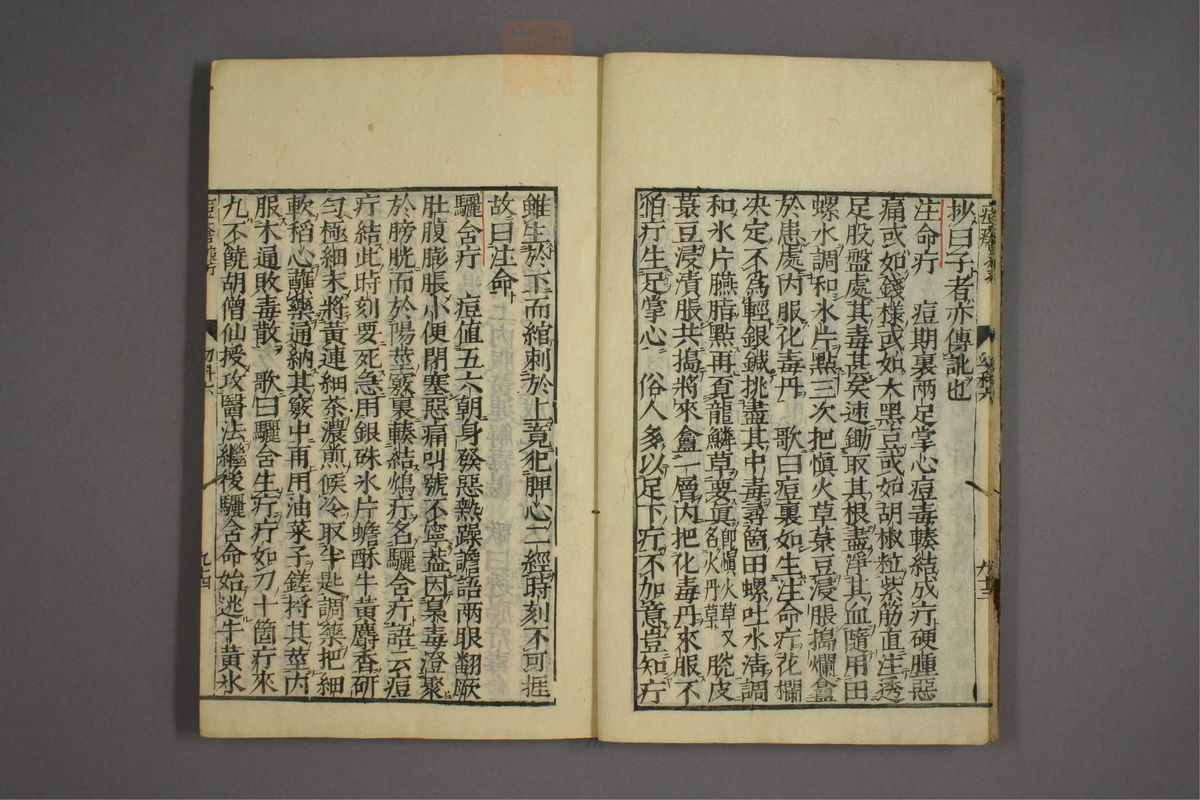 抄曰子者亦傳訛也
注命疔　痘期裏兩足掌心痘毒輳結成疔硬腫惡
痛或如錢樣或如木黑豆或如胡椒粒紫筋直生透
足股盤處其毒甚發速鋤取其根盡淨其血隨用田
螺水調和氷片點三次把慎火草菉豆浸脹搗爛盦
於患處內服化毒丹　歌曰痘裏如生注命疔花欄
决定不為輕銀鍼挑盡其中毒尋箇田螺吐水淸調
和氷片臙脂點再覔龍鱗草要眞即愼火草又名火丹草脫皮
菉豆浸漬脹共搗將來盦一層內把化毒丹來服不
怕疔生足掌心　俗人多以足下疔不加意豈知疔
雖生於下而綰刺於上竟犯脾心二經時刻不可捱
故曰注命
驪舍疔　痘值五六朝身發惡熱躁譫語兩眼翻厥
肚腹膨脹小便閉塞惡痛叫號不寧葢因稟毒澄聚
於膀胱而於陽莖竅裏輳結鴆疔名驪舍疔語云痘
疔結此時刻要死急用銀硃氷片蟾酥牛黃麝香研
勻極細末將黃連細茶濃煎候冷取半匙調藥把細
軟稻心蘸藥通納其竅中再用油菜子鎈捋其莖內
服木通敗毒散　歌曰驪舍生疔疔如刀十箇疔來
九不饒胡僧仙授攻醫法繼後驪舍命始逃牛黃氷
九十三
九十四